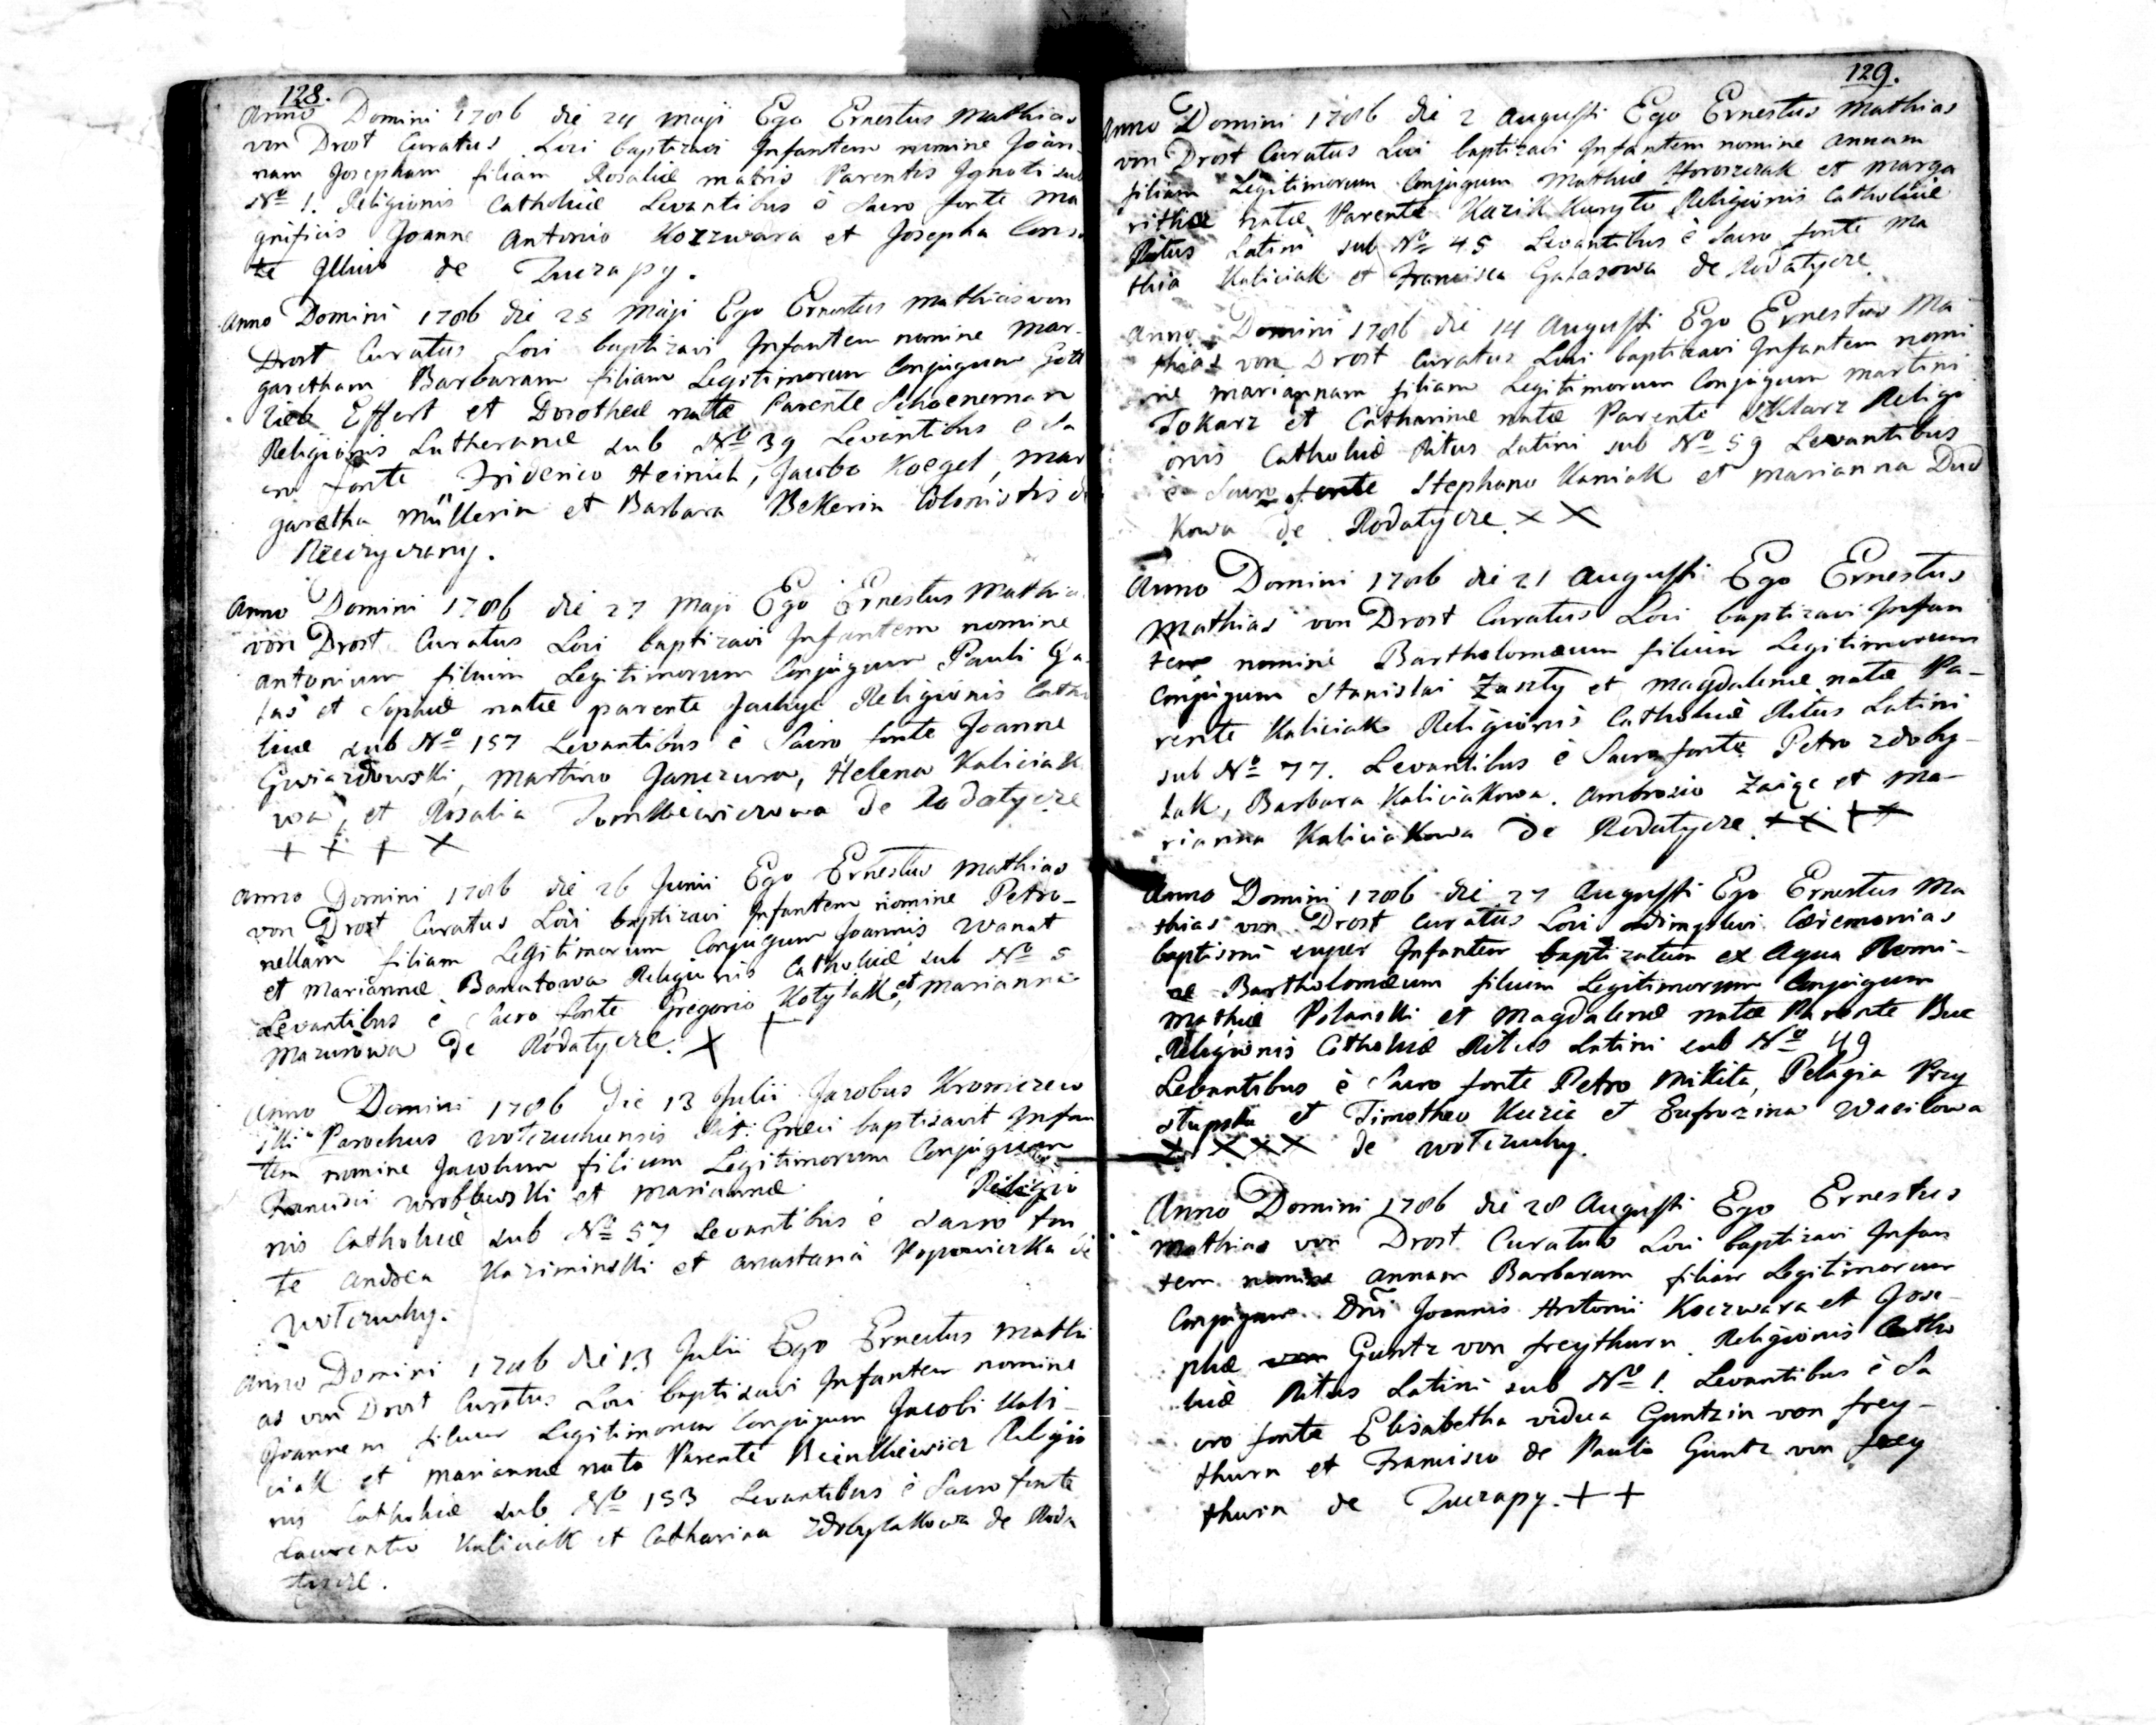 128.
Anno Domini 1786 die 24 Maji Ego Ernestus Mathias
von Drost Curatus Loci baptizavi Infantem nomine Joan-
nam Josepham filiam Rosaliæ matris Parentis Ignoti sub
No 1. Religionis Catholicæ Levantibus è Sacro fonte Ma
gnificis Joanne Antonio Kozzwara et Josepha Consor
te Illius de Zuczapy.
Anno Domini 1786 die 25 Maji Ego Ernestus Mathias von
Drost Curatus Loci baptizavi Infantem nomine Mar-
garetham Barbaram filiam Legitimorum Conjugum Gott
lieb Effert et Dorotheæ natæ Parente Schoeneman
Religionis Lutheranæ sub No 39 Levantibus è Sa
cro fonte Friderico Heinich, Jacobo Koegel, Mar
garetha Müllerin et Barbara Bekerin Colonistis de
Rzeczyczany.
Anno Domini 1786 die 27 Maji Ego Ernestus Mathia
von Drost Curatus Loci baptizavi Infantem nomine
Antonium filium Legitimorum Conjugum Pauli Ga-
las et Sophiæ natæ parente Jachyc Religionis Catho
licæ sub No 157 Levantibus è Sacro fonte Joanne
Gwiazdowski, Martino Janczura, Helena Kaliciako
wa, et Rosalia Tomkiewiczowa de Rodatycze
+ + + ×
Anno Domini 1786 die 26 Junii Ego Ernestus Mathias
von Drost Curatus Loci baptizavi Infantem nomine Petro-
nellam filiam Legitimorum Conjugum Joannis Wanat
et Mariannæ Banatowa Religionis Catholicæ sub No 5
Levantibus è Sacro fonte Gregorio Kotylak, et Marianna
Mazurowa de Rodatycze. × +
Anno Domini 1786 die 13 Julii Jacobus Kromczew
ski Parochus Wotczuhensis Rit: Græci baptisavit Infan
tem nomine Jacobum filium Legitimorum Conjugum
Francisci Wroblewski et Mariannæ Religio
nis Catholicæ sub No 57 Levantibus è Sacro fon
te Andrea Kaziminski et Anastasia Popowiczka de
Wotczuhy.
Anno Domini 1786 die 13 Julii Ego Ernestus Mathi
as von Drost Curatus Loci baptisavi Infantem nomine
Joannem filium Legitimorum Conjugum Jacobi Kali-
ciak et Mariannæ nata Parente Bienkiewicz Religio
nis Catholicæ sub No 153 Levantibus è Sacro fonte
Laurentio Kaliciak et Catharina Zdobylakowa de Roda
tycze.
129.
Anno Domini 1786 die 2 Augusti Ego Ernestus Mathias
von Drost Curatus Loci baptizavi Infantem nomine Annam
filiam Legitimorum Conjugum Mathiæ Horoszczak et Marga
rithæ natæ Parente Kuzik Kuryto Religionis Catholicæ
Ritus Latini sub No 45 Levantibus è Sacro fonte Ma
thia Kaliciak et Francisca Galasowa de Rodatycze
Anno Domini 1786 die 14 Augusti Ego Ernestus Ma
thias von Drost Curatus Loci baptizavi Infantem nomi
ne Mariannam filiam Legitimorum Conjugum Martini
Tokarz et Catharinæ natæ Parente Sklarz Religi
onis Catholicæ Ritus Latini sub No 59 Levantibus
è Sacro fonte Stephano Kaniak et Marianna Dud
kowa de Rodatycze. × ×
Anno Domini 1786 die 21 Augusti Ego Ernestus
Mathias von Drost Curatus Loci baptizavi Infan
tem nomine Bartholomæum filium Legitimorum
Conjugum Stanislai Zaszty et Magdalenæ natæ Pa-
rente Kaliciak Religionis Catholicæ Ritus Latini
sub No 77. Levantibus è Sacro fonte Petro Zdoby-
lak, Barbara Kaliciakowa. Ambrosio Zaiąc et Ma-
rianna Kaliciakowa de Rodatycze. × × × ×
Anno Domini 1786 die 27 Augusti Ego Ernestus Ma
thias von Drost Curatus Loci adimplevi Cæremonias
baptismi super Infantem baptizatum ex Aqua Nomi-
ne Bartholomæum filium Legitimorum Conjugum
Mathiæ Polanski et Magdalenæ natæ Parente Buc
Religionis Catholicæ Ritus Latini sub No 49
Levantibus è Sacro fonte Petro Mikita, Pelagia Przy
stupska et Timotheo Kuzic et Eufrozina Wasilowa
× × × × de Wotczuhy.
Anno Domini 1786 die 28 Augusti Ego Ernestus
Mathias von Drost Curatus Loci baptizavi Infan
tem nomine Annam Barbaram filiam Legitimorum
Conjugum Dñi Joannis Antonii Koczwara et Jose-
phæ von Guntz von freythurn. Religionis Catho
licæ Ritus Latini sub No 1. Levantibus è Sa
cro fonte Elisabetha vidua Guntzin von frey-
thurn et Francisco de Paula Guntz von frey
thurn de Zuczapy. + +